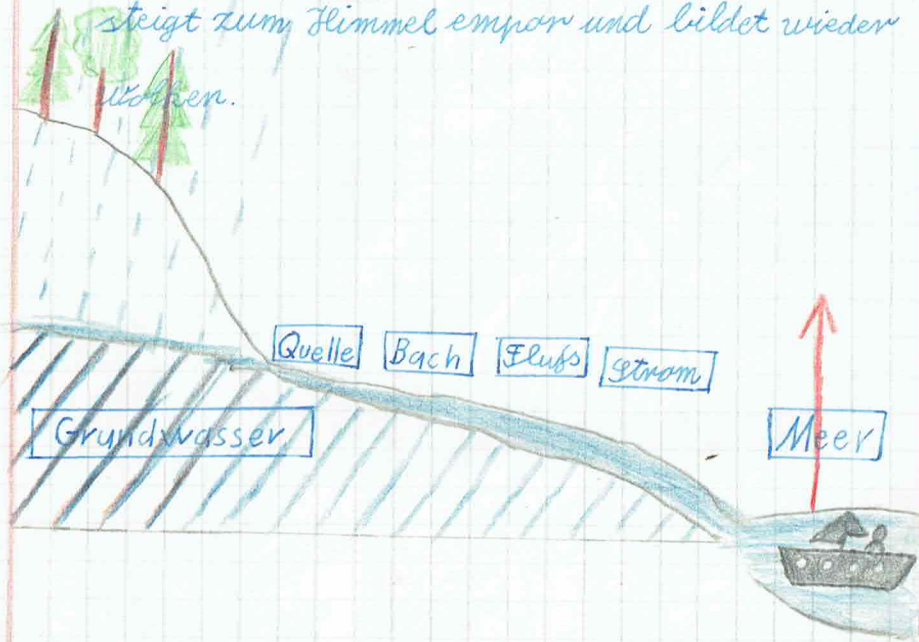 steigt zum Himmel empor und bildet wieder
Wolken.
Quelle Bach Fluß Strom
Grundwasser Meer